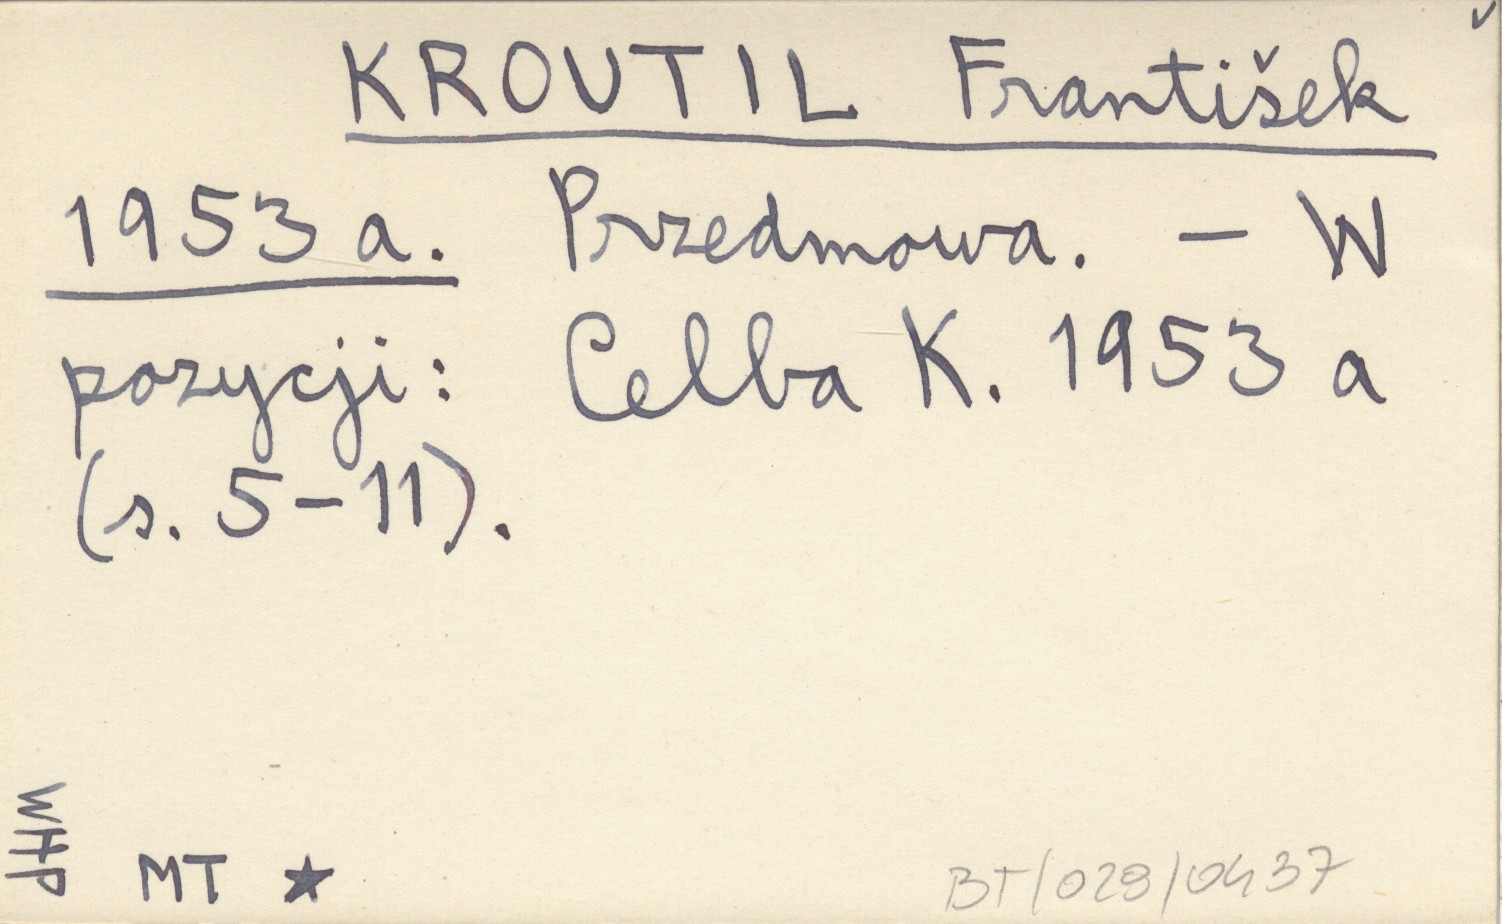 KROUTIL František
1953 a. Przedmowa. – W
pozycji: Celba K. 1953 a
(s. 5–11).
WHP
MT ★
BT/028/0437